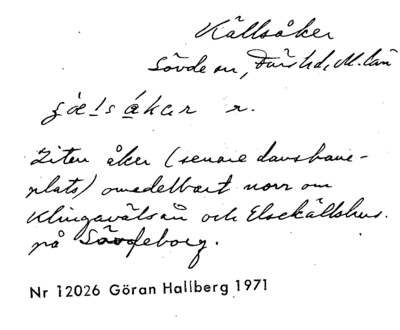 Källsåker
Sövde sn, Färs hd, M. län
r.
Liten åker (senare dansbane-
plats) omedelbart norr om
Klingavälsån och Elsekällshus
på Sövdeborg.
Nr 12026 Göran Hallberg 1971